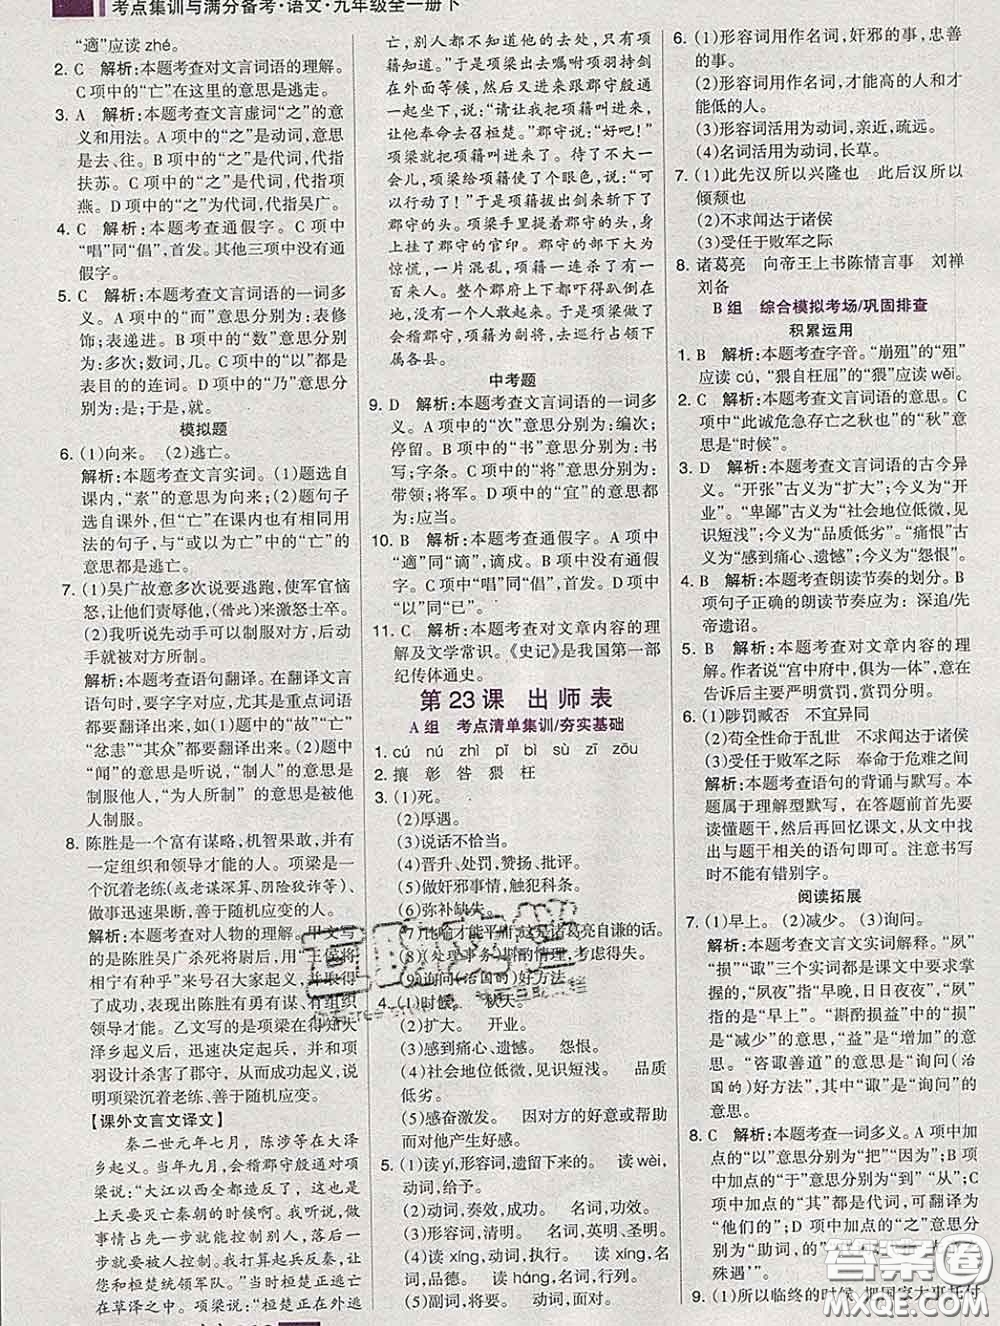 考点集训与满分备考·语文·九年级全一册下
“適”应读 zhé。
2. C 解析:本题考查对文言词语的理解。
C项中的“亡”在这里的意思是逃走。
3. A 解析:本题考查文言虚词“之”的意
义和用法。A 项中的“之”是动词,意思
是去、往。B 项中的“之”是代词,代指
扶苏。C 项中的“之”是代词,代指项
燕。D 项中的“之”是代词,代指吴广。
4. C 解析:本题考查通假字。C 项中
“唱”同“倡”,首发。其他三项中没有通
假字。
5. C 解析:本题考查文言词语的一词多
义。A 项中的“而”意思分别为:表修
饰;表递进。B 项中的“数”意思分别
为:多次;数词,几。C 项中的“以”都是
表目的的连词。D 项中的“乃”意思分
别为:是;于是,就。
模拟题
6. (1)向来。(2)逃亡。
解析:本题考查文言实词。(1)题选自
课内,“素”的意思为向来;(2)题句子
选自课外,但“亡”在课内也有相同用
法的句子,与文中的“亡”中的“亡”
的意思都是逃亡。
7. (1)吴广故意多次说要逃跑,使军官恼
怒,让他们责辱他,(借此)来激怒士卒。
(2)我听说先动手可以制服对方,后动
手就被对方所制。
解析:本题考查语句翻译。在翻译文言
语句时,要字字对应,尤其是重点词语
都要翻译出来,如(1)题中的“故”“亡”
“忿恚”“其众”都要翻译出来。(2)题
中“闻”的意思是听说,“制人”的意思是
制服他人,“为人所制”的意思是被他
人制服。
8. 陈胜是一个富有谋略,机智果敢,并有
一定组织和领导才能的人。项梁是一
个沉着老练(或老谋深算、阴险狡诈等)、
做事迅速果断,善于随机应变的人。
解析:本题考查对人物的理解。甲文写
的陈胜吴广杀死两将尉后,用“王侯将
相宁有种乎”来号召大家起义,并取得
了成功,表现出陈胜有勇有谋、有组织
领导的才能。乙文写的是项梁得知大
泽乡起义,迅速决定起兵,并与项
羽设计杀害了郡守,获得成功,表现了
项梁沉着老练、善于随机应变。
【课外文言文译文】
秦二世元年七月,陈涉等在大泽
乡起义。当年九月,会稽郡守殷通对项
梁说:“大江以西全都造反了,这也是
上天要灭亡秦朝的时候啊。我听说,做
事情占先一步就能控制别人,落后一步
就要被人控制。我打算起兵反秦,让
您和桓楚统领军队。”当时桓楚正逃亡
在草泽之中。项梁说:“桓楚正在外逃
亡,别人都不知道他的去处,只有项
籍知道。”于是项梁出去嘱咐项羽持剑
在外面等候,然后又进来跟郡守殷通
一起坐下,说:“请让我把项籍叫进来,
让他奉命去召桓楚。”郡守说:“好吧!”
项梁就把项籍叫进来了。待了不大一
会儿,项梁给项籍使了个眼色,说:“可
以行动了!”于是项籍拔出剑来斩下了
郡守的头。项梁手里提着郡守的头,身
上挂了郡守的官印。郡守的部下大为
惊慌,一片混乱,项籍一连杀了一百来
人。整个郡府上下都吓得趴倒在地,
没有一个人敢起来。于是项梁做了会
稽郡守,项籍为副将,去巡行占领下
属各县。
中考题
9. D 解析:本题考查文言词语的一词多
义。A 项中的“次”意思分别为:编次;
停留。B 项中的“书”意思分别为:书
写;字条。C 项中的“将”意思分别为:
带领;将军。D 项中的“宜”的意思都
为:应当。
10. B 解析:本题考查通假字。A 项中
“適”同“谪”,谪戍。B 项中没有通假
字。C 项中“唱”同“倡”,首发。D 项
中“以”同“已”。
11. C 解析:本题考查对文章内容的理
解及文学常识。《史记》是我国第一部
纪传体通史。
第23课 出师表
A 组 考点清单集训/夯实基础
1. cú nú zhì pǐ bì sù zī zōu
2. 攘 彰 咎 猥 枉
3. (1)死。
(2)厚遇。
(3)说话不恰当。
(4)晋升、处罚,赞扬、批评。
(5)做奸邪事情,触犯科条。
(6)弥补缺失。
(7)见识才能平庸,这是诸葛亮自谦的话。
(8)(处理事务)斟酌情理,考虑。
(9)询问(治国的)好方法。
4. (1)时候。 秋天。
(2)扩大。 开业。
(3)感到痛心、遗憾。 怨恨。
(4)社会地位低微,见识短浅。 品质
低劣。
(5)感奋激发。 因对方的好意或帮助
而对他产生好感。
5. (1)读 yí,形容词,遗留下来的。 读 wèi,
动词,给予。
(2)动词,奏效,成功。 名词,功劳。
(3)形容词,清明。 名词,英明、圣明。
(4)读 xíng,动词,执行。 读 xíng,名
词,品德。 读 háng,名词,行伍。
(5)副词,将要。 动词,施恩。
6. (1)形容词用作名词,奸邪的事,忠善
的事。
(2)形容词用作名词,才能高的人和才
能低的人。
(3)形容词活用为动词,亲近,疏远。
(4)名词活用为动词,长草。
7. (1)此先汉所以兴隆也 此后汉所以
倾颓也
(2)不求闻达于诸侯
(3)受任于败军之际
8. 诸葛亮 向帝王上书陈情言事 刘禅
刘备
B 组 综合模拟考场/巩固排查
积累运用
1. B 解析:本题考查字音。“崩殂”的“殂”
应读 cú,“猥自枉屈”的“猥”应读 wěi。
2. C 解析:本题考查文言词语的意思。C
项中“此诚危急存亡之秋也”的“秋”意
思是“时候”。
3. D 解析:本题考查文言词语的古今异
义。“开张”古义为“扩大”;今义为“开
业”。“卑鄙”古义为“社会地位低微,见
识短浅”;今义为“品质低劣。“痛恨”古
义为“感到痛心、遗憾”;今义为“怨恨”。
4. B 解析:本题考查朗读节奏的划分。B
项句子正确的朗读节奏应为:深追/先
帝遗诏。
5. B 解析:本题考查对文章内容的理
解。作者说“宫中府中,俱为一体”,意在
告诉后主要严明赏罚,赏罚分明。
6. (1)陟罚臧否 不宜异同
(2)苟全性命于乱世 不求闻达于诸侯
(3)受任于败军之际 奉命于危难之间
解析:本题考查语句的背诵与默写。本
题属于理解型默写,在答题前首先要
读懂题干,然后再回忆课文,从文中找
出与题干相关的语句即可。注意书写
时不能有错别字。
阅读拓展
7. (1)早上。(2)减少。(3)询问。
解析:本题考查文言文实词解释。“夙”
“损”“诹”三个实词是课文中要求掌
握的,“夙夜”指“早晚,日日夜夜”,“夙”
指的是“早上”。“斟酌损益”中的“损”
是“减少”的意思,“益”是“增加”的意
思。“咨诹善道”的意思是询问(治
国的)好方法”,其中“诹”是“询问”的
意思。
8. C 解析:本题考查一词多义。A 项中加
点的“以”意思分别为“把”“因为”;B 项
中加点的“于”意思分别为“到”“从”;C
项中加点的“其”都是代词,可翻译为
“他们的”;D 项中加点的“之”意思分
别为“助词,的”“
殊遇”。
9. (1)所以临终的时候 把国家大事托付
答案圈
MXQE.COM